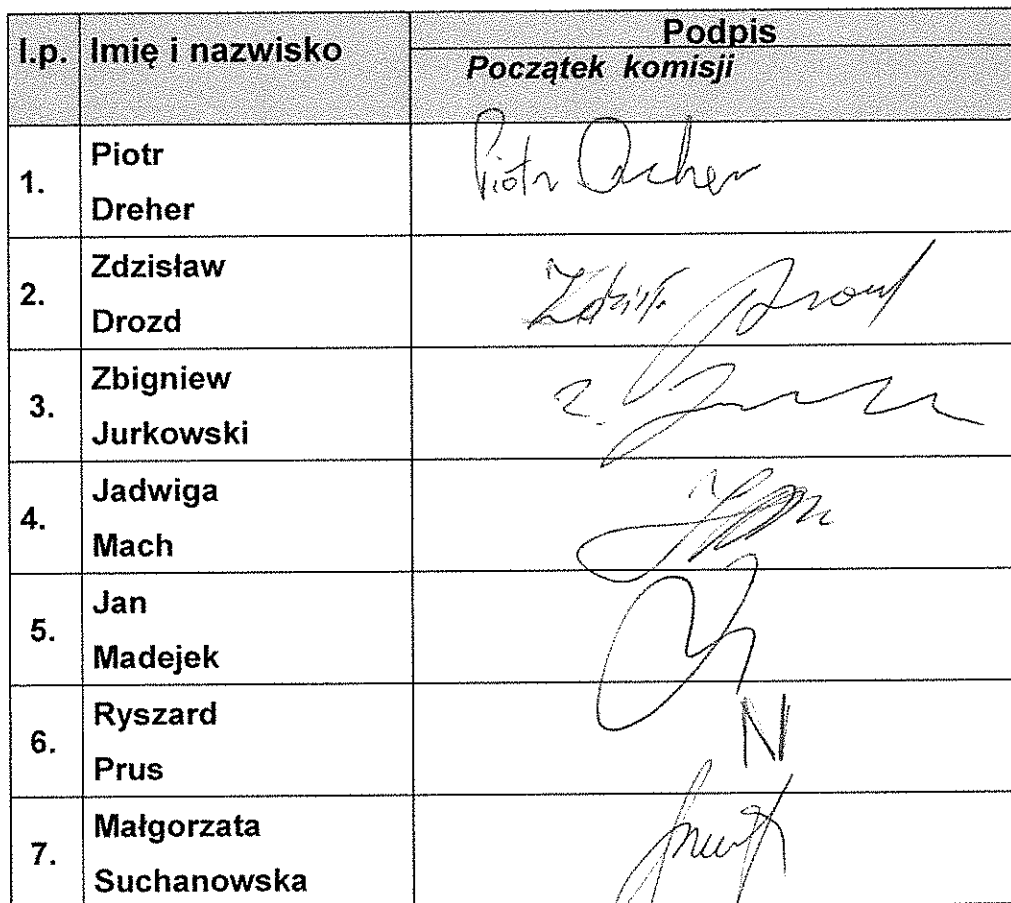 l.p. Imię i nazwisko Podpis
Początek komisji
1. Piotr Dreher Piotr Dreher
2. Zdzisław Drozd Zdzisł. Drozd
3. Zbigniew Jurkowski Z.
4. Jadwiga Mach
5. Jan Madejek
6. Ryszard Prus N
7. Małgorzata Suchanowska